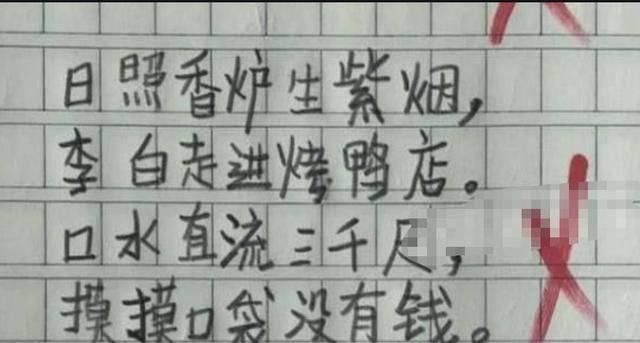 日照香炉生紫烟，
李白走进烤鸭店。
口水直流三千尺，
摸摸口袋没有钱。